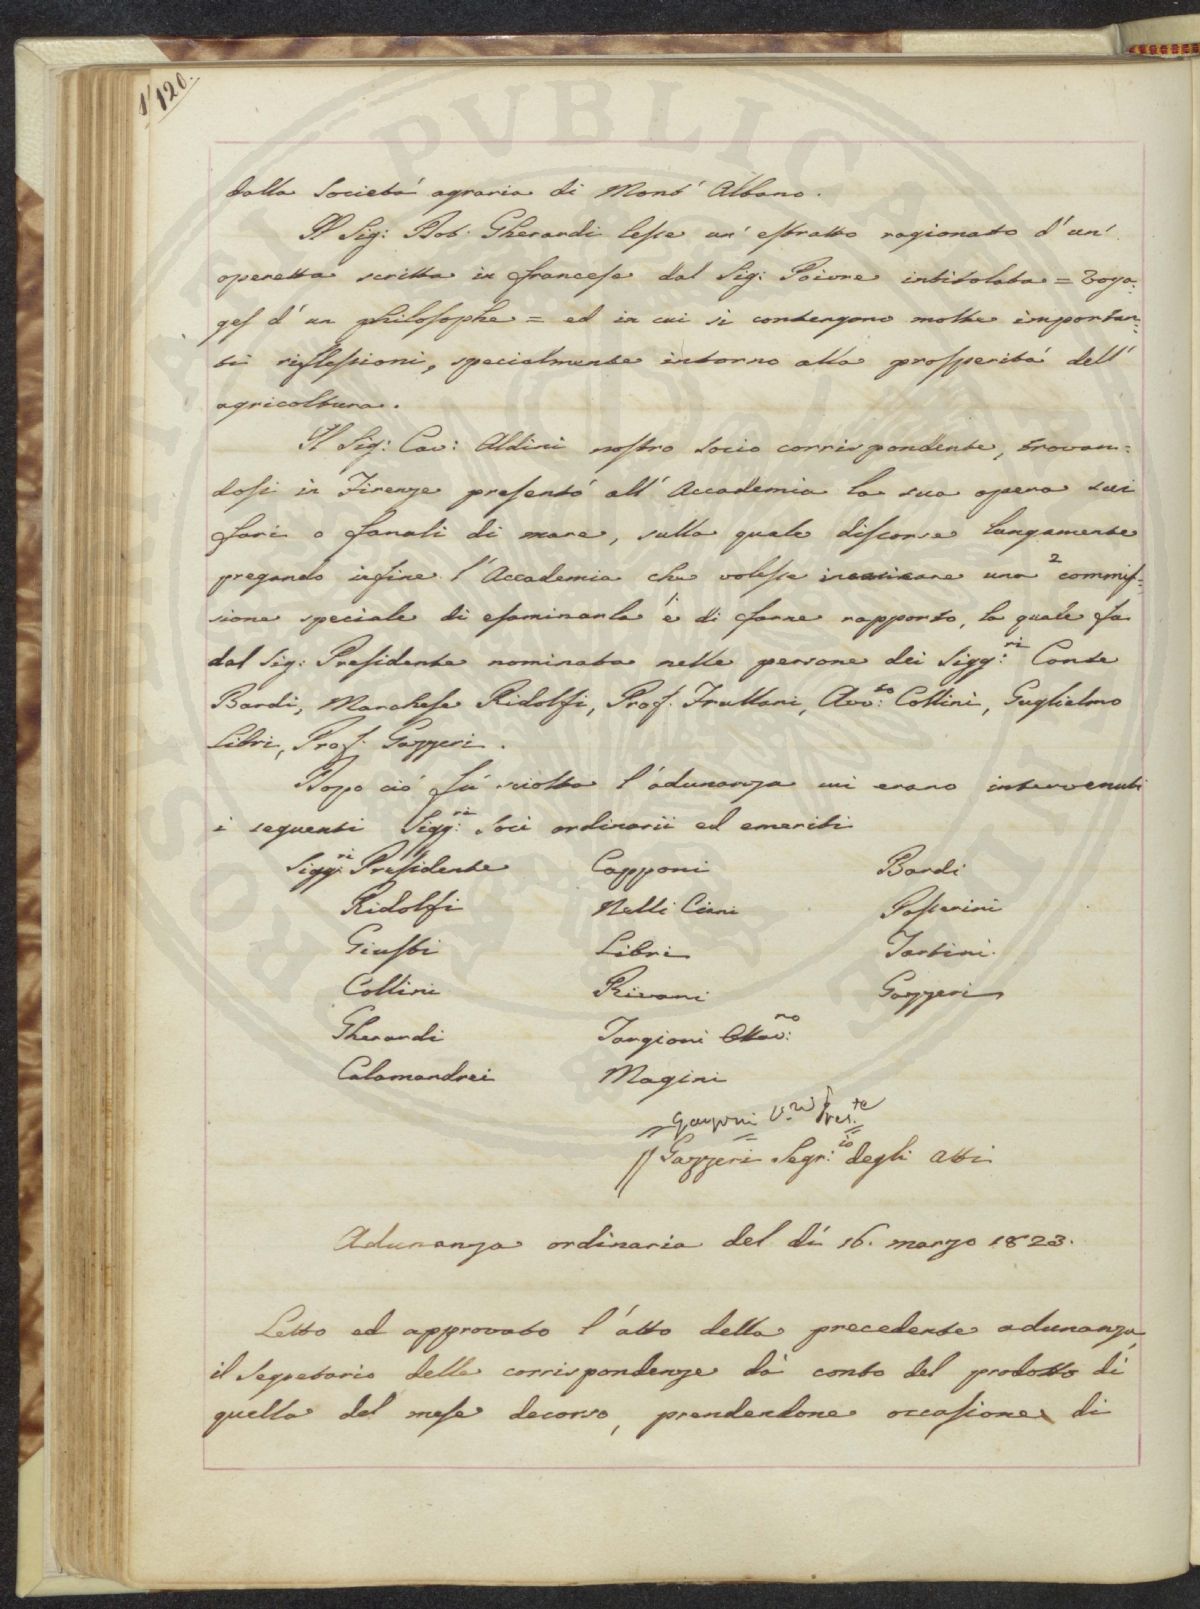 1/120.
dalla Società agraria di Mont' Albano.
Il Sig: Dot. Gherardi lesse un' estratto ragionato d' un'
operetta scritta in francese dal Sig: Poivre intitolata = Voya:
ges d' un philosophe = ed in cui si contengono molte importan=
ti riflessioni, specialmente intorno alla prosperità dell'
agricoltura.
Il Sig: Cav: Aldini nostro Socio corrispondente, trovan=
dosi in Firenze presentò all' Accademia la sua opera sui
fari o fanali di mare, sulla quale discorse lungamente
pregando infine l' Accademia che volesse incaricare una commis=
sione speciale di esaminarla è di farne rapporto, la quale fu
dal Sig: Presidente nominata nelle persone dei Sigg:ri Conte
Bardi, Marchese Ridolfi, Prof. Frullani, Avv:to Collini, Guglielmo
Libri, Prof. Gazzeri.
Dopo ciò fù sciolta l'adunanza cui erano intervenuti
i seguenti Sigg:ri Soci ordinarii ed emeriti
Sigg:ri Presidente Capponi Bardi
Ridolfi Nelli Ciani Passerini
Giusti Libri Tartini.
Collini Rivani Gazzeri
Gherardi Targioni Ottav:no
Calamandrei Magini
V. Pres.te
Gazzeri Segr:io degli Atti
Adunanza ordinaria del dì 16. marzo 1823.
Letto ed approvato l'atto della precedente adunanza,
il Segretario delle corrispondenze dà conto del prodotto di
quella del mese decorso, prendendone occasione di
PVBLICA